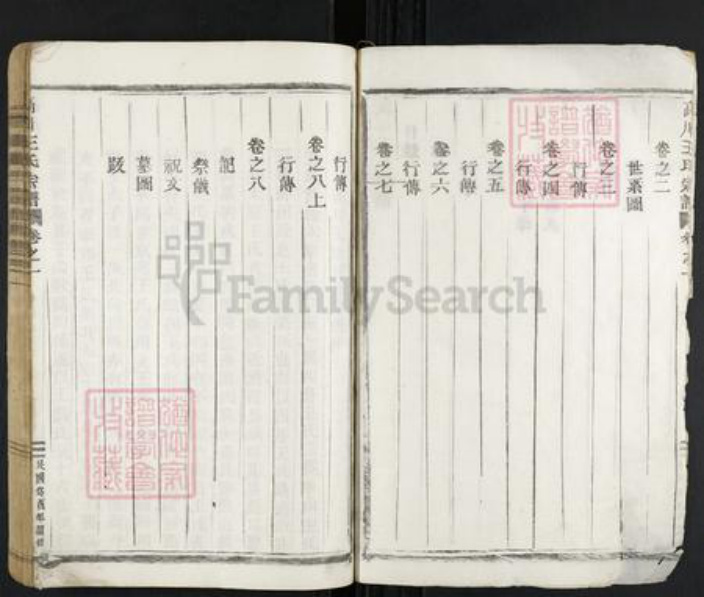 卷之二
世系圖
卷之三
行傳
卷之四
行傳
卷之五
行傳
卷之六
行傳
卷之七
行傳
卷之八上
行傳
卷之八
記
祭儀
祝文
墓圖
跋
王氏宗譜
卷之一
FamilySearch